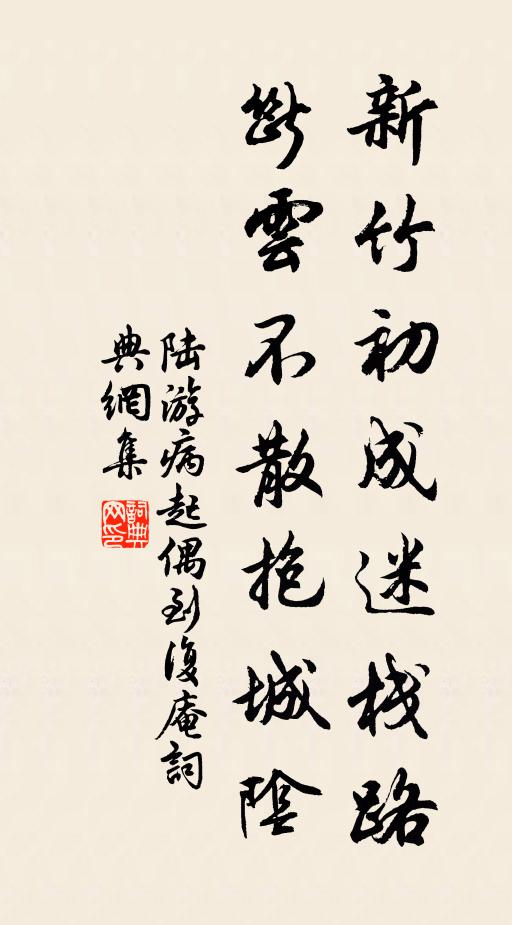 新竹初成迷栈路
断雲不散抱城陰
陆游病起偶到復庵詞
典網集
詞典
网印